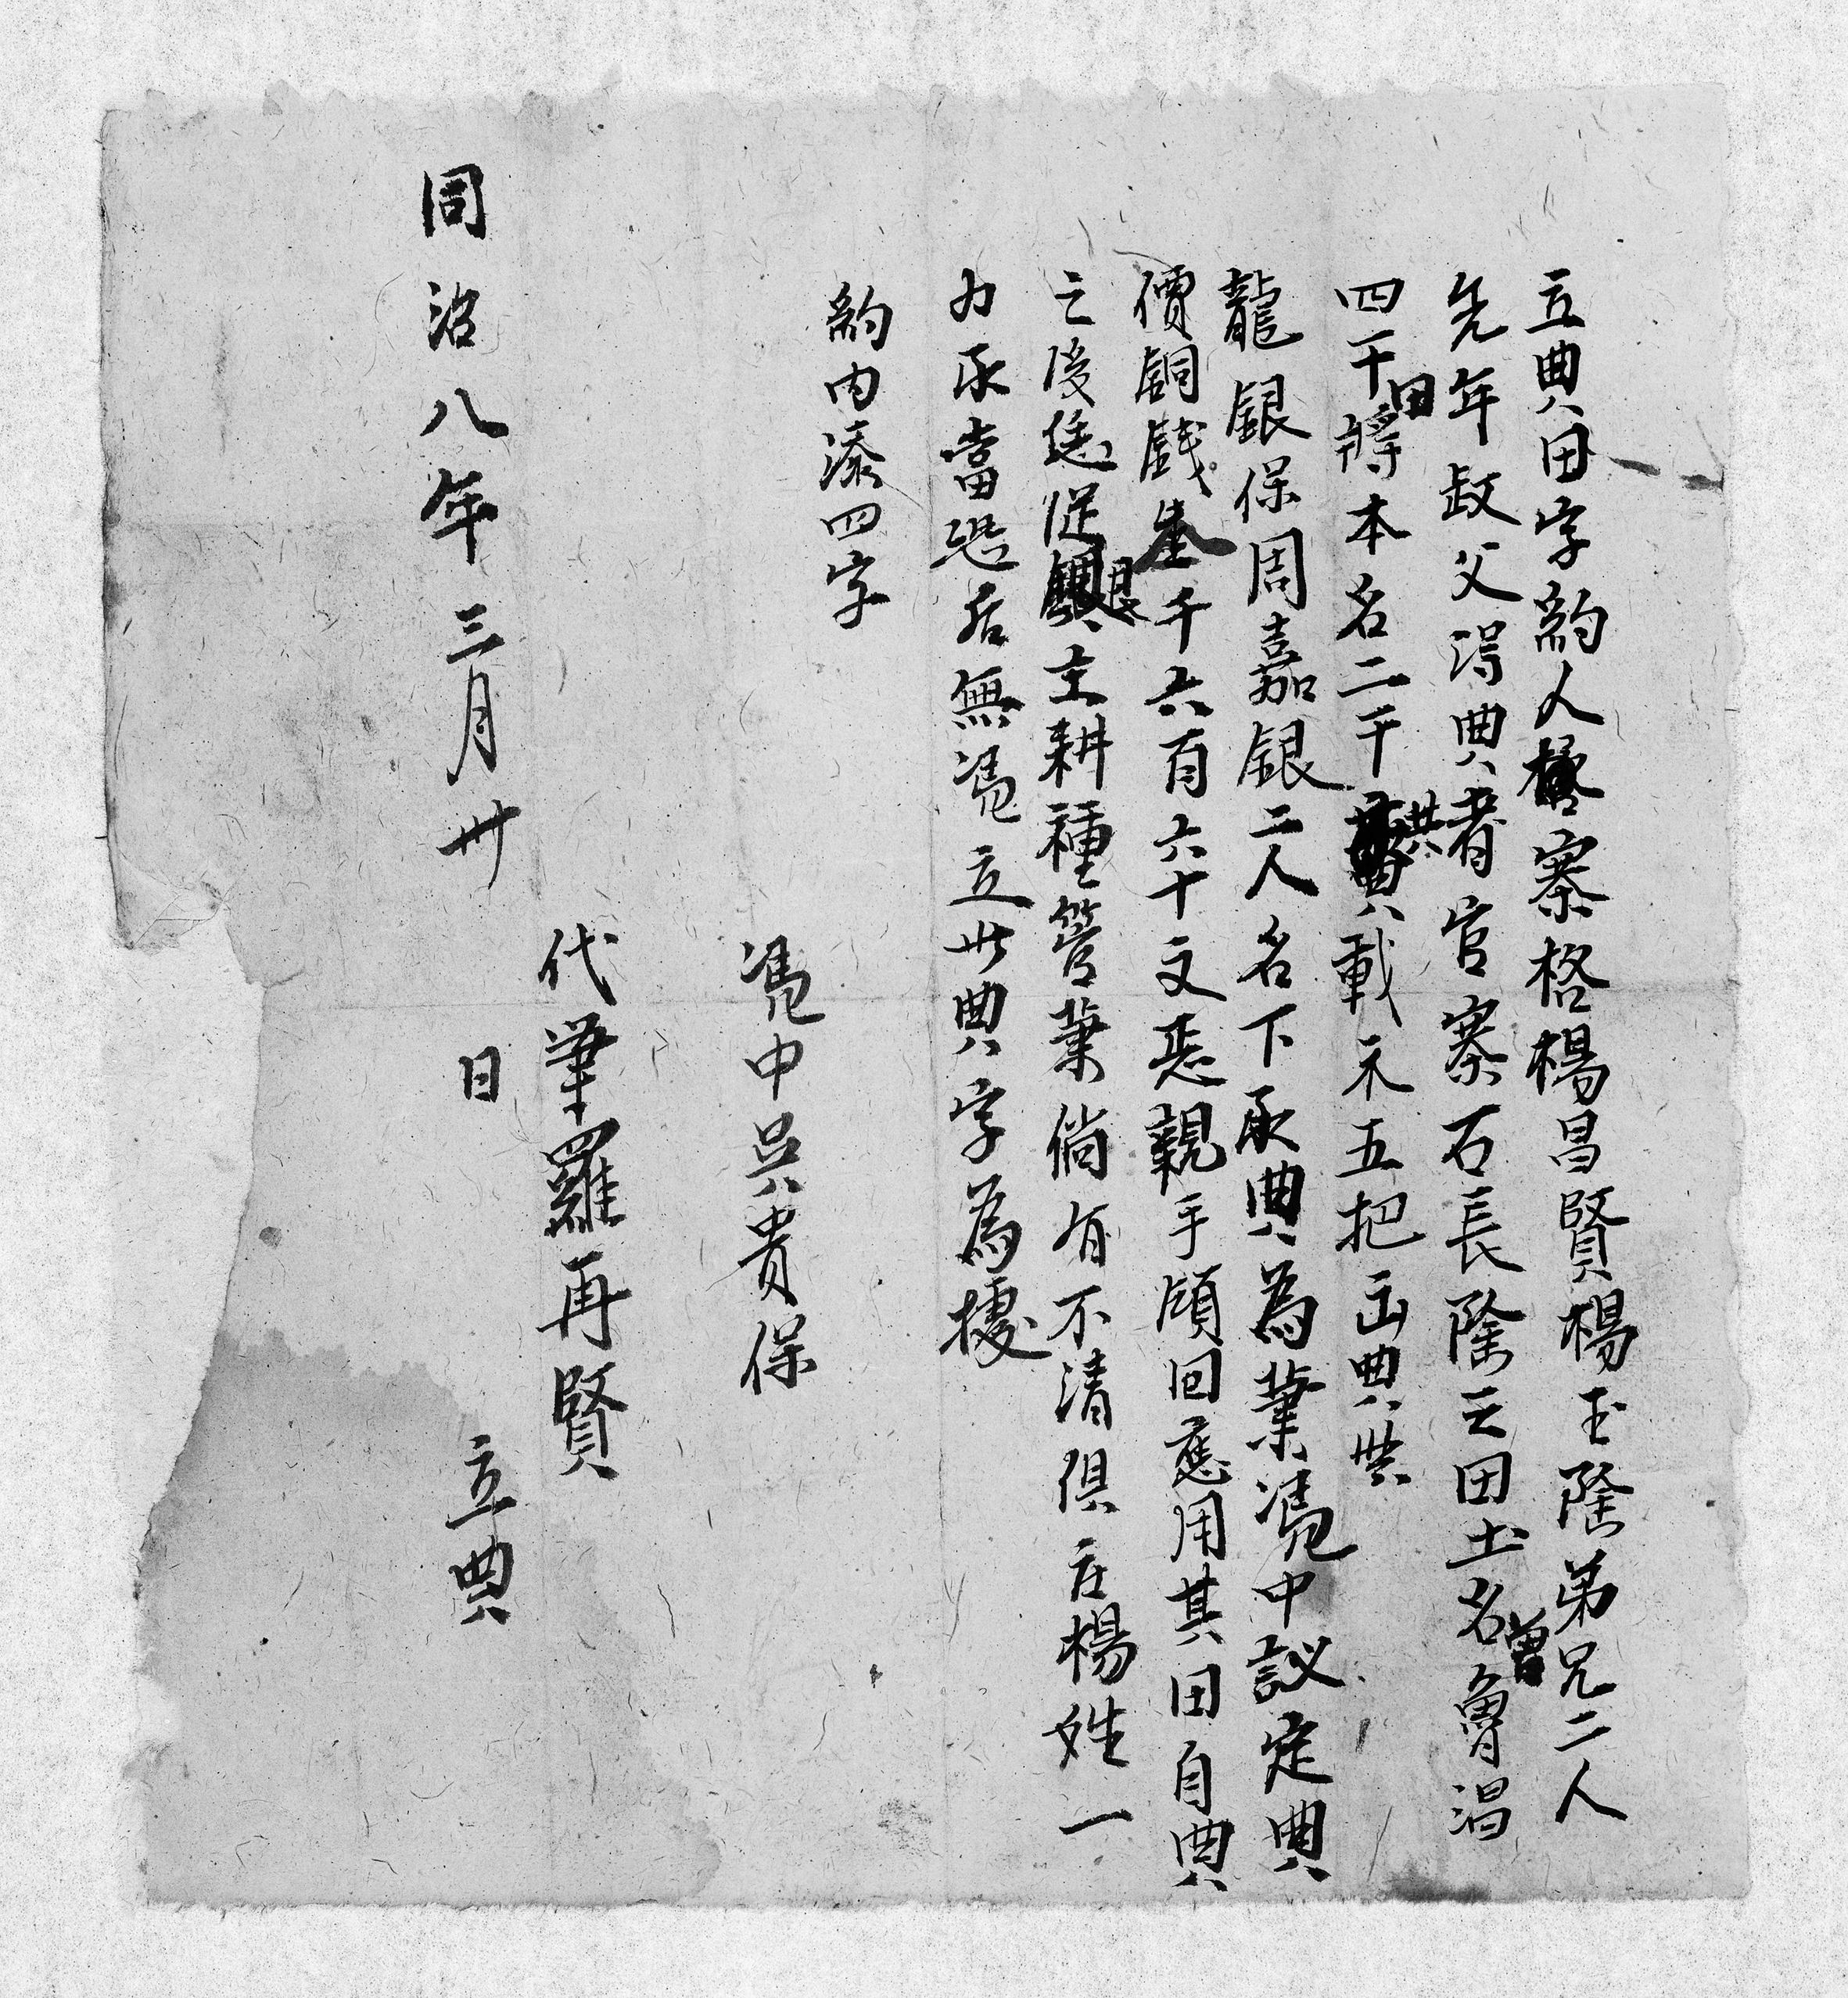 立典田字約人㭲寨格楊昌賢楊玉隆弟兄二人
先年故父淂典者官寨石長隆之田土名曾魯淐
四千田將本名二千共載禾五把出典與
龍銀保周嘉銀二人名下承典為業憑中議定典
價銅錢叁千六百六十文悉親手領回應用其田自典
之後恁從銀主耕種管業倘有不清俱在楊姓一
力承當恐后無憑立此典字為據
約内添四字
憑中吳貴保
代筆羅再賢
同治八年三月卅日立典